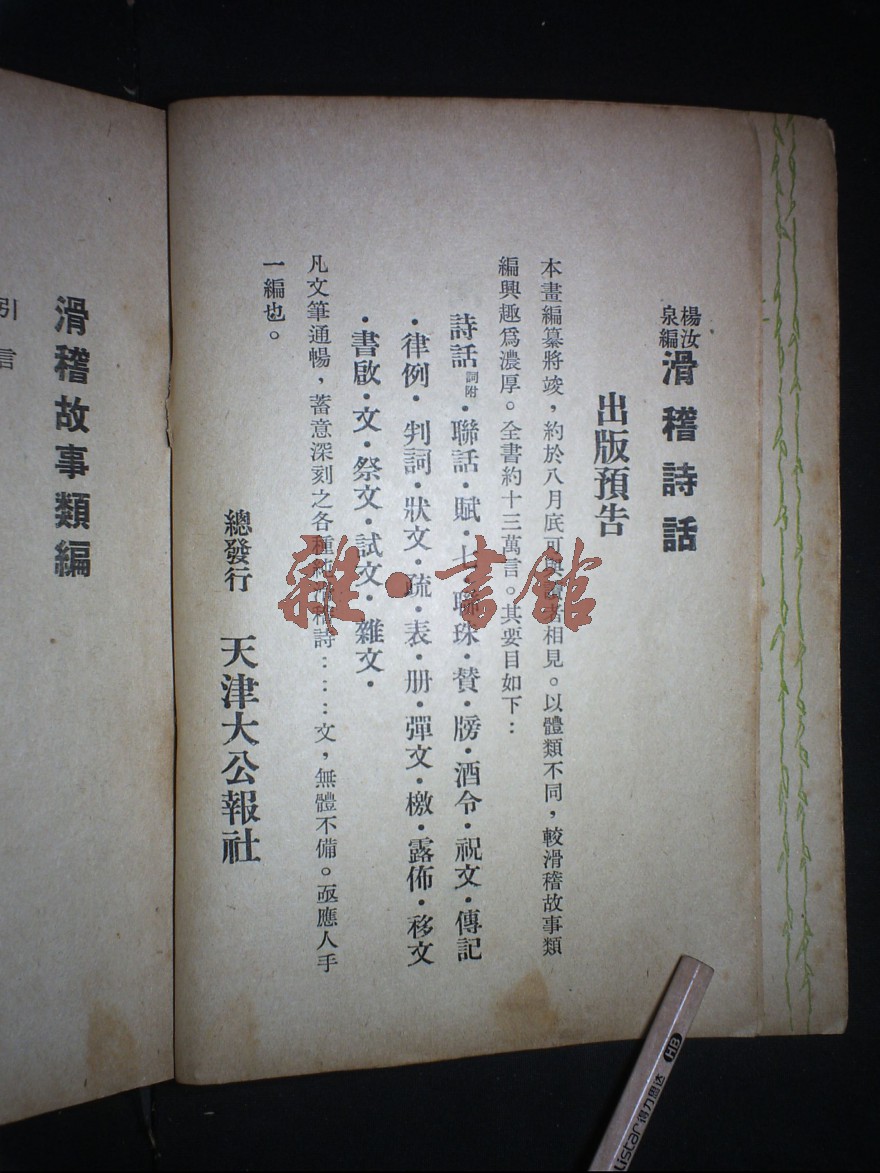 楊汝泉編 滑稽詩話
出版預告
本畫編纂將竣，約於八月底可與讀者相見。以體類不同，較滑稽故事類
編興趣爲濃厚。全書約十三萬言。其要目如下：
詩話詞附・聯話・賦・七・聯珠・贊・牓・酒令・祝文・傳記
・律例・判詞・狀文・疏・表・册・彈文・檄・露佈・移文
・書啟・文・祭文・試文・雜文・
凡文筆通暢，蓄意深刻之各種純滑稽詩：：：文，無體不備。亟應人手
一編也。
總發行 天津大公報社
滑稽故事類編
引言
雜・書館
HB
Listar 得力思达